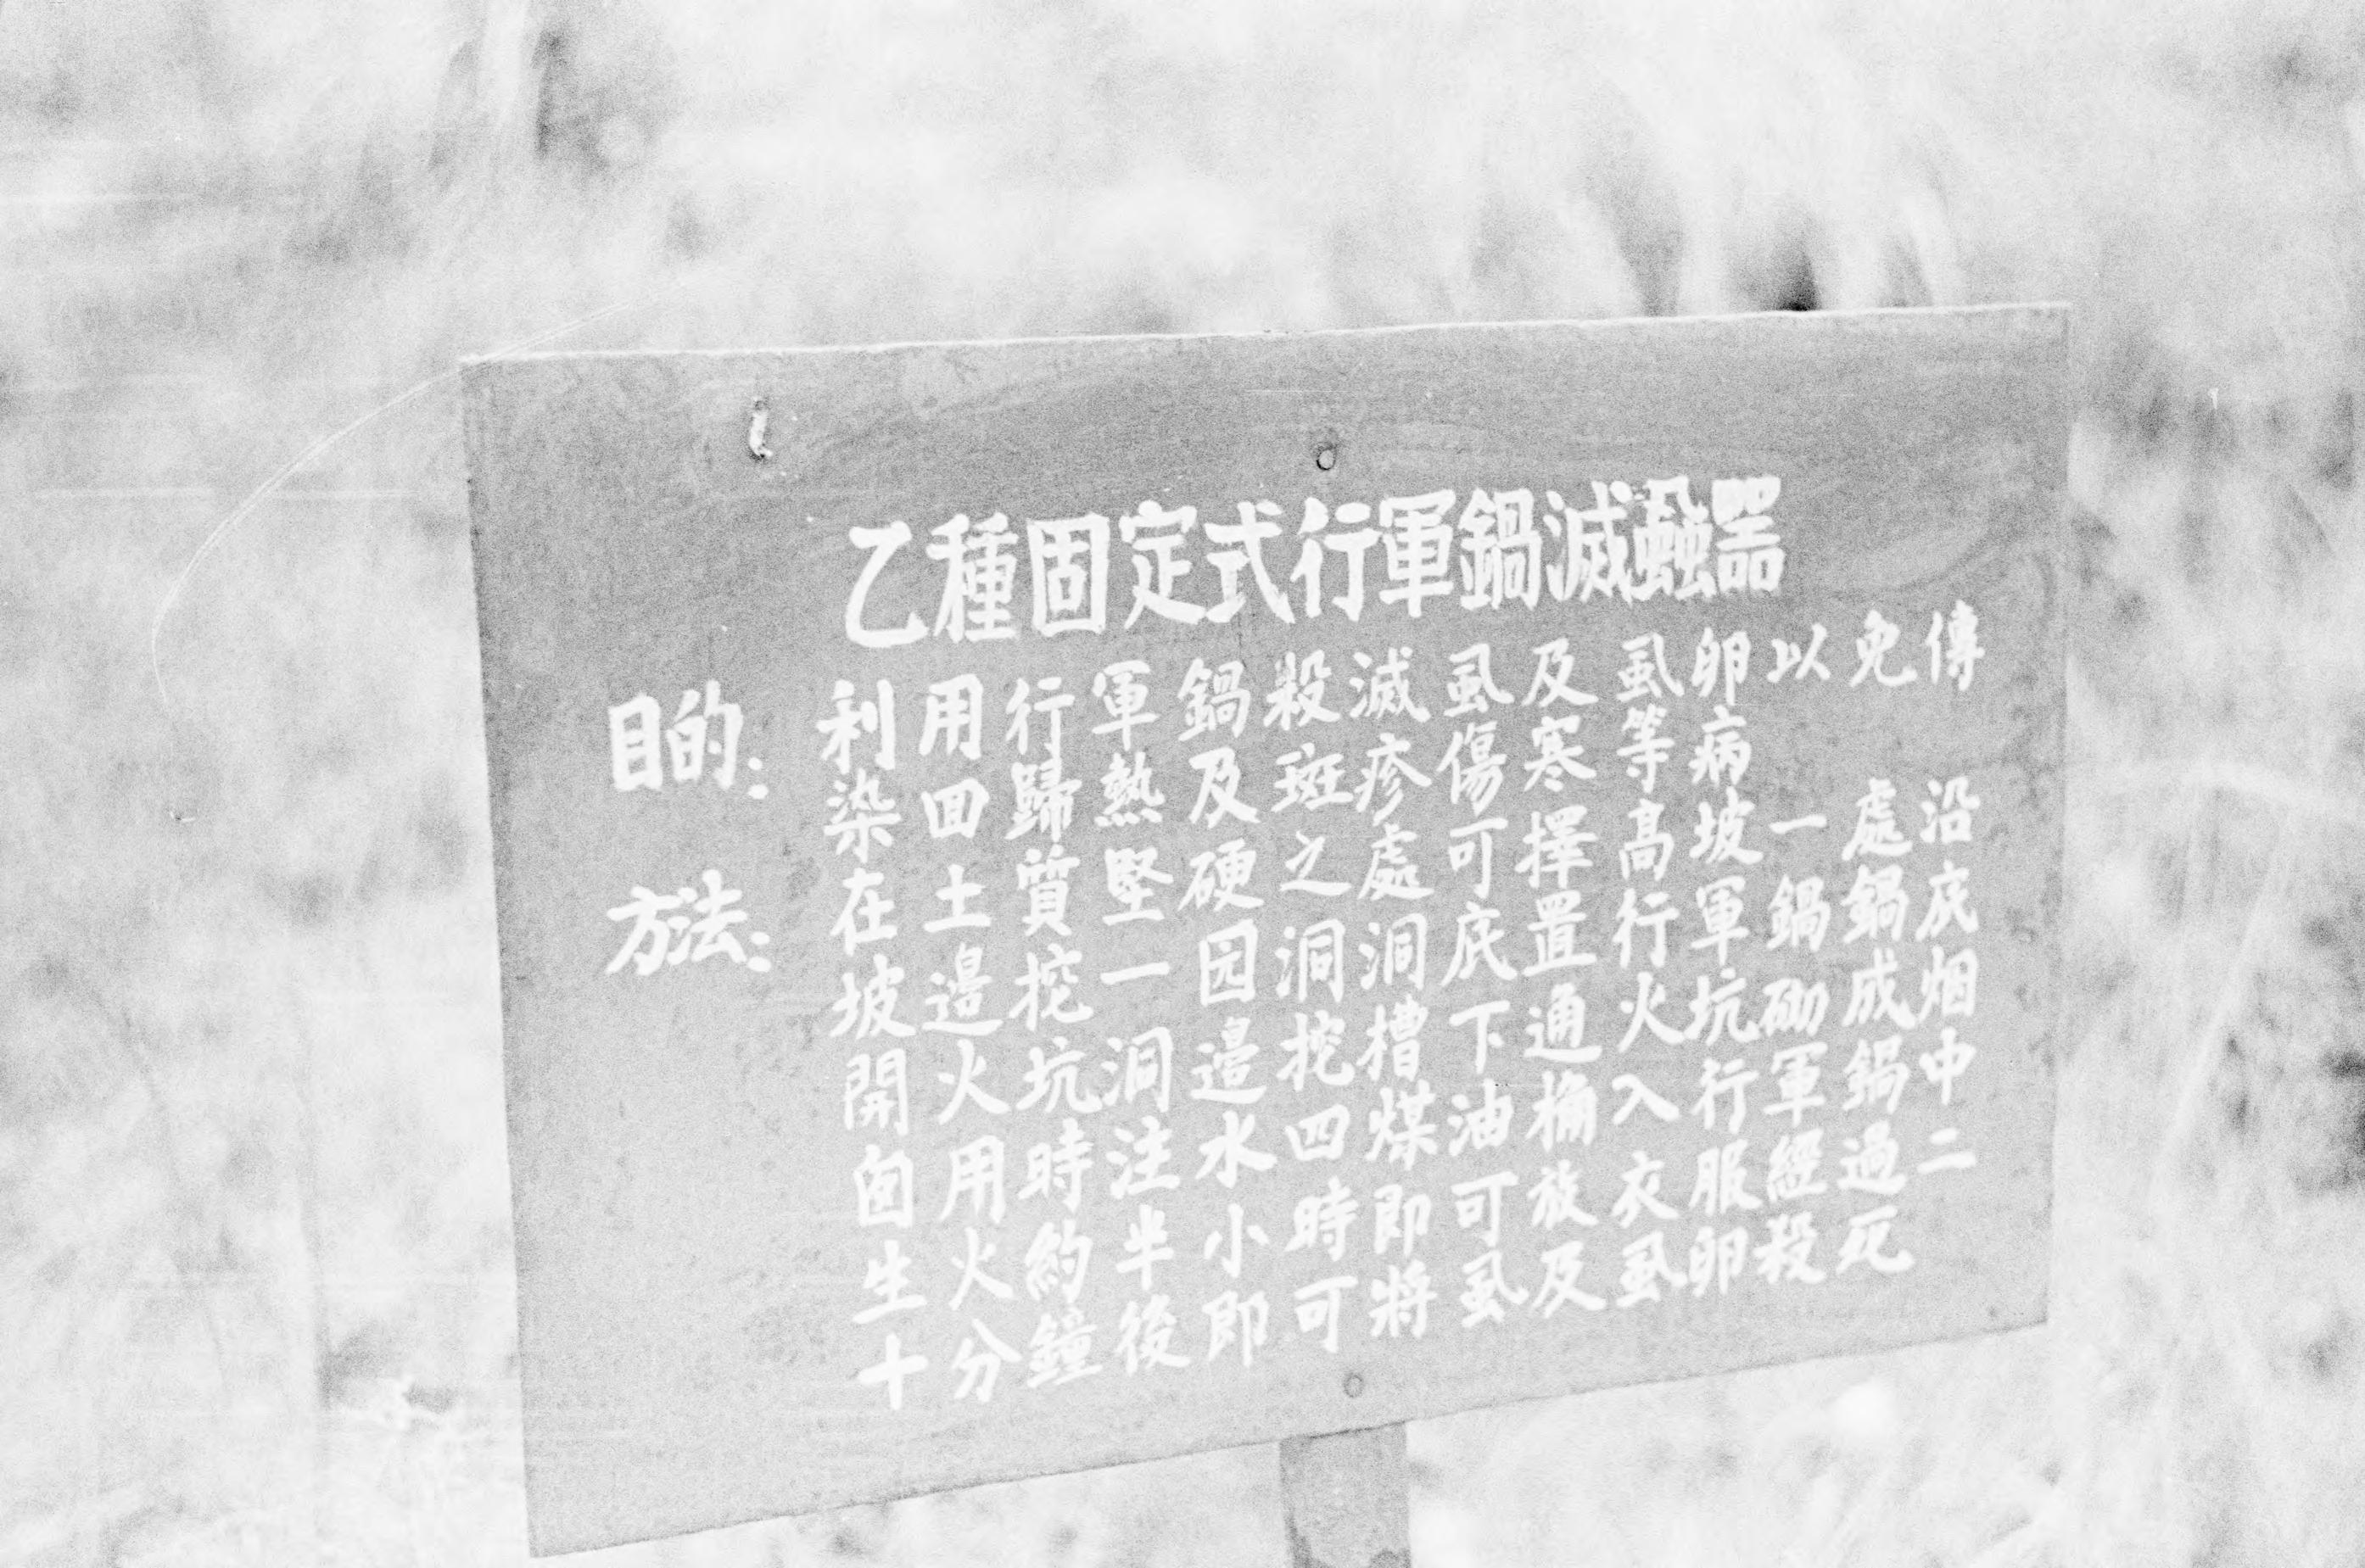 乙種固定式行軍鍋滅蝨器
目的：利用行軍鍋殺滅虱及虱卵以免傳
染回歸熱及斑疹傷寒等病
方法：在土質堅硬之處可擇高坡一處沿
坡邊挖一园洞洞底置行軍鍋鍋底
開火坑洞邊挖槽下通火坑砌成烟
囱用時注水四煤油桶入行軍鍋中
生火約半小時即可放衣服經過二
十分鐘後即可將虱及虱卵殺死